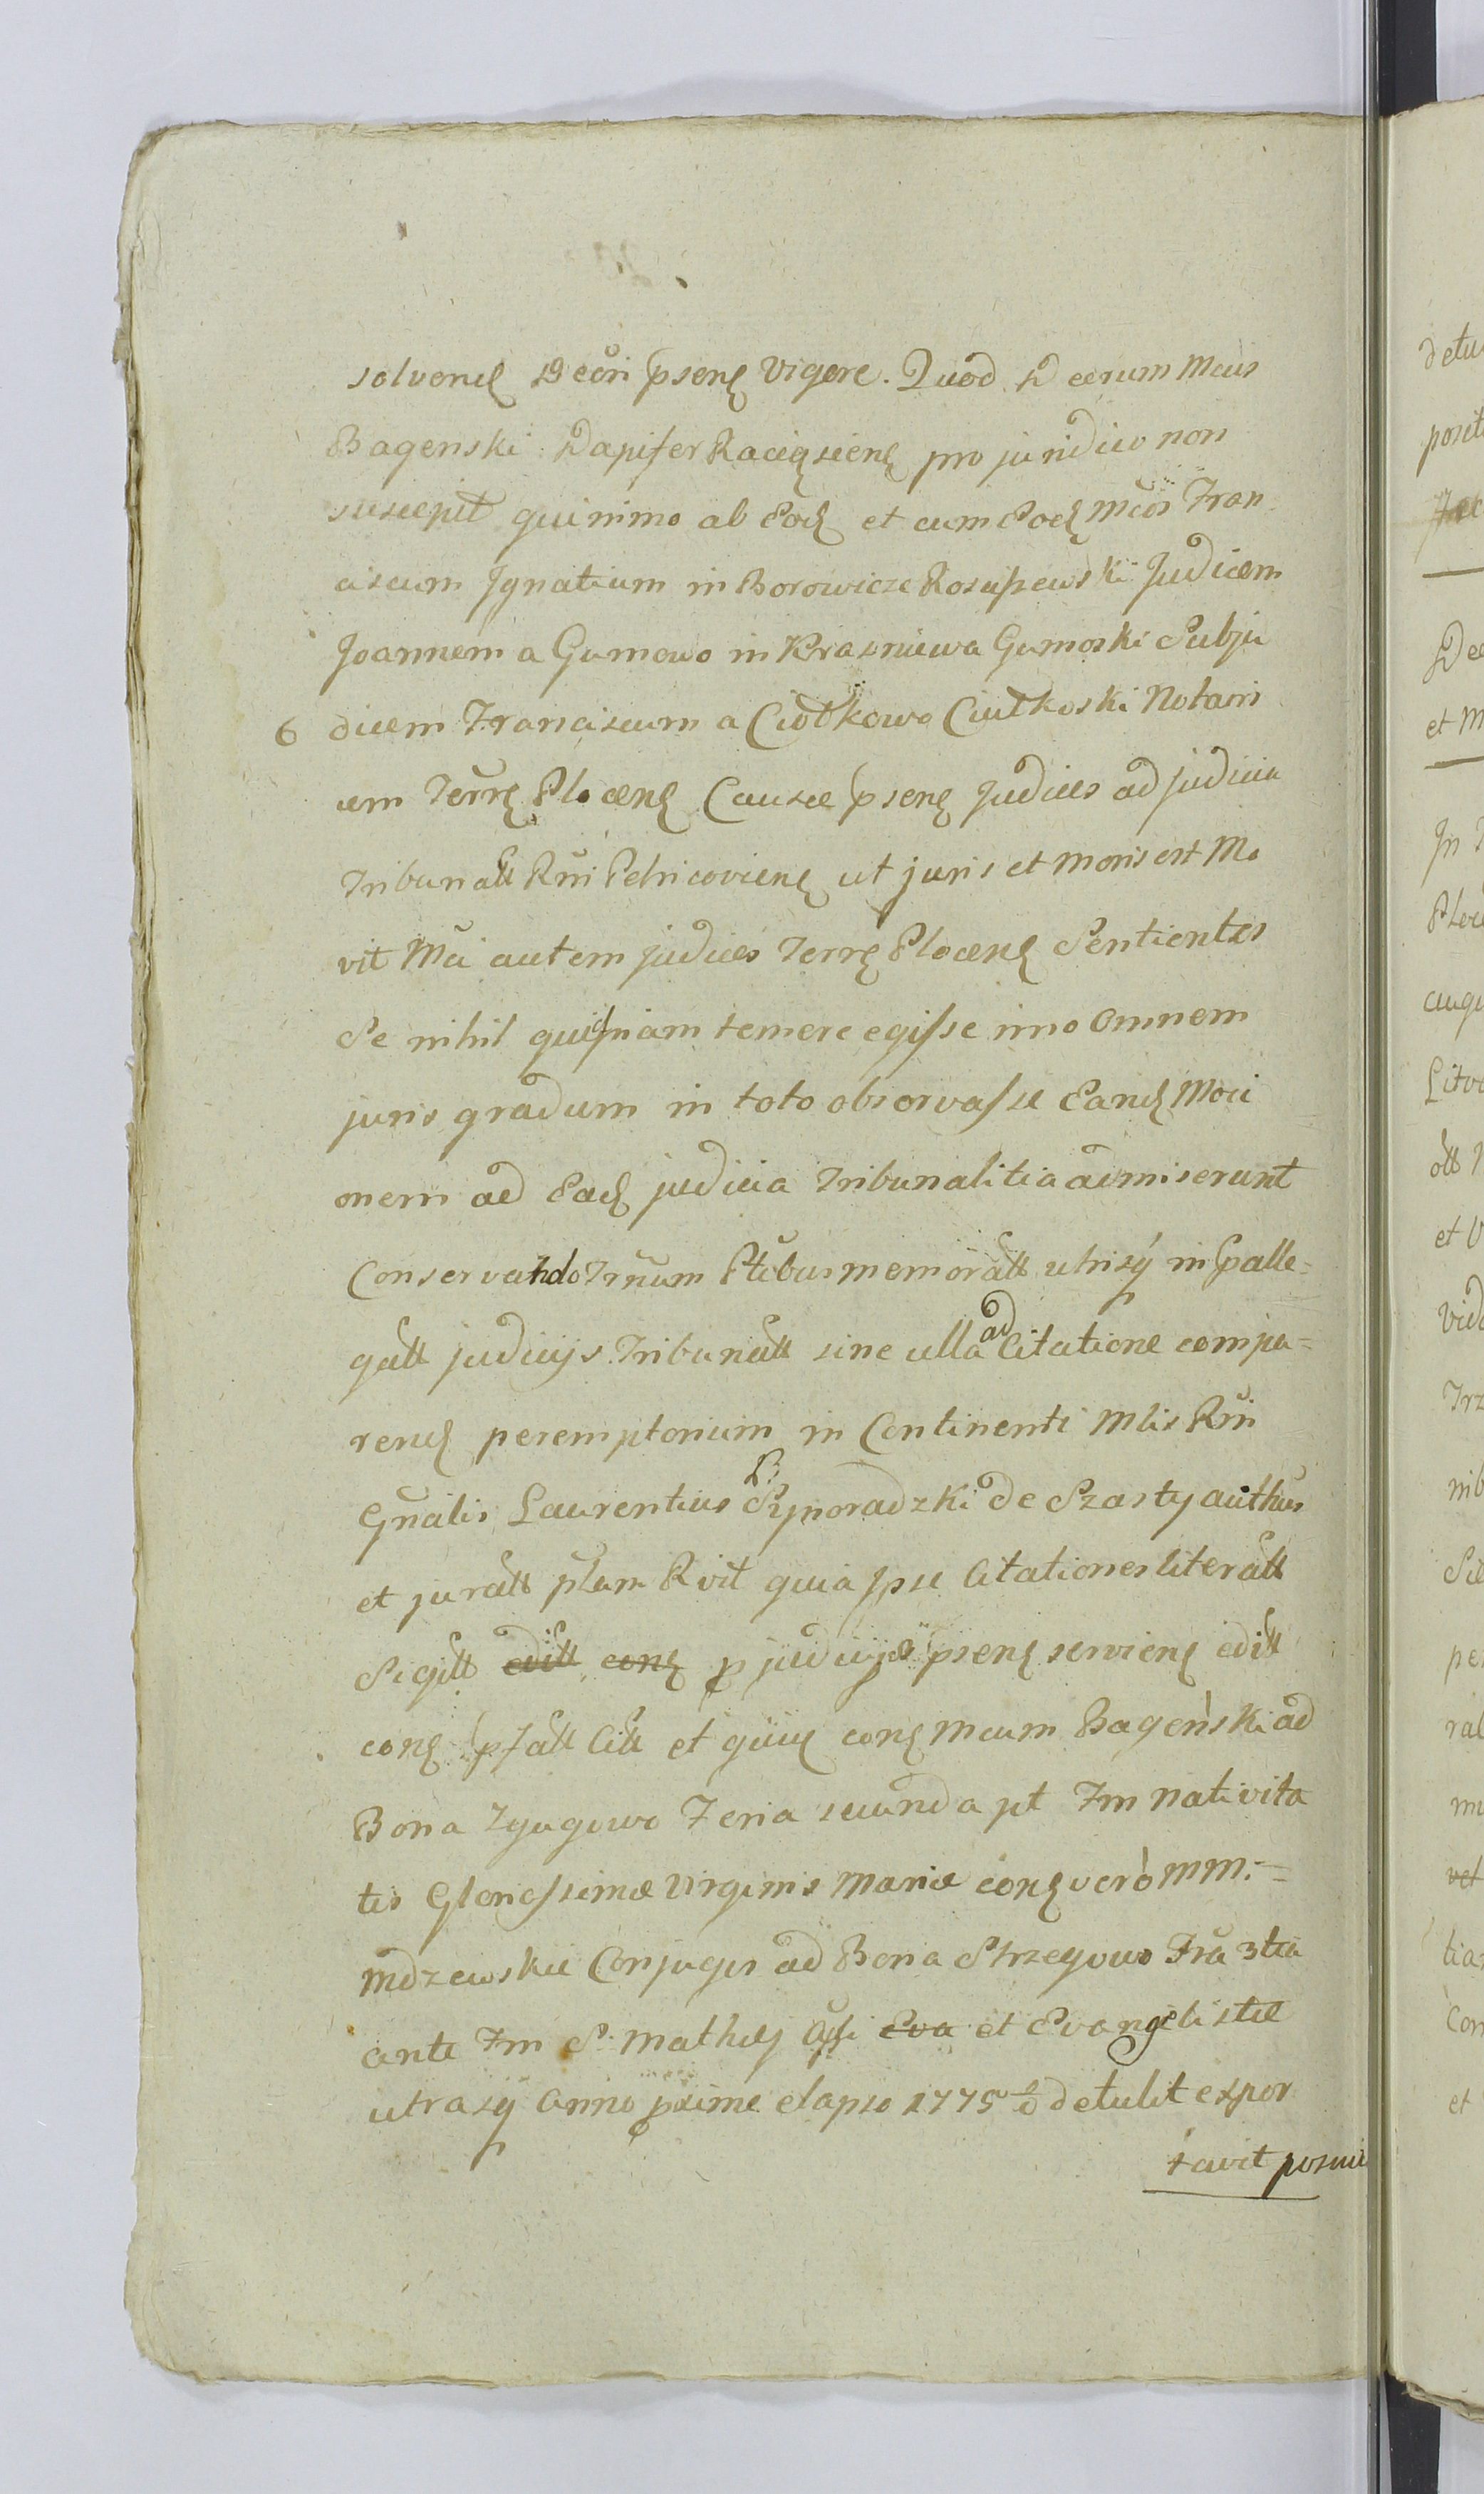 solvend Decri psens Vigore. Quod Decrum Mcus
Bagenski Dapifer Raciąziens pro juridico non
suscepit quinimo ab Eod et cum Eod Mcos Fran
ciscum Ignatium in Borowicze Rosciszewski Judicem
Joannem a Gumowo in Krasniewa Gumoski Subju
6 dicem Franciscum a Ciotkowo Ciutkoski Notari
um Terrs Plocens Causæ psens Judices ad judicia
Tribunall Rni Petricoviens ut juris et moris est Mo
vit Mci autem judices Terrs Plocens Sentientes
Se nihil quispiam temere egisse imo Omnem
juris gradum in toto observasse Eand Moti
onem ad Ead judicia Tribunalitia admiserunt
Conservando Trnum Ptibus memoratt utrisq in palle=
gatt judicijs Tribunall sine ulla ad Citatione compa=
rend peremptorium in Continenti Mlis Rni
Gnalis Laurentius Synoradzki de Szasty authus
et juratt plam Rvit quia Ipse Citationes literatt
Sigill editt cons p judicijs psens serviens editt
cons pfatt Citt et quid cons Mcum Bageński ad
Bona Zgagowo Feria secunda pt Fm Nativita
tis Gloriossimæ Virginis Mariæ cons verò MM.=
Mdzewskie Conjuges ad Bona Strzegowo Fria 3tia
ante Fm S. Mathej Apli Eva et Evangelistæ
utrasq Anno pxime elapso 1775to detulit expor
tavit posui
detu
posit
Dec
et M
In
Ploc
augu
Litv
ott
et V
vid
Trz
nib
Sie
per
ral
mi
vet
tia
Con
et